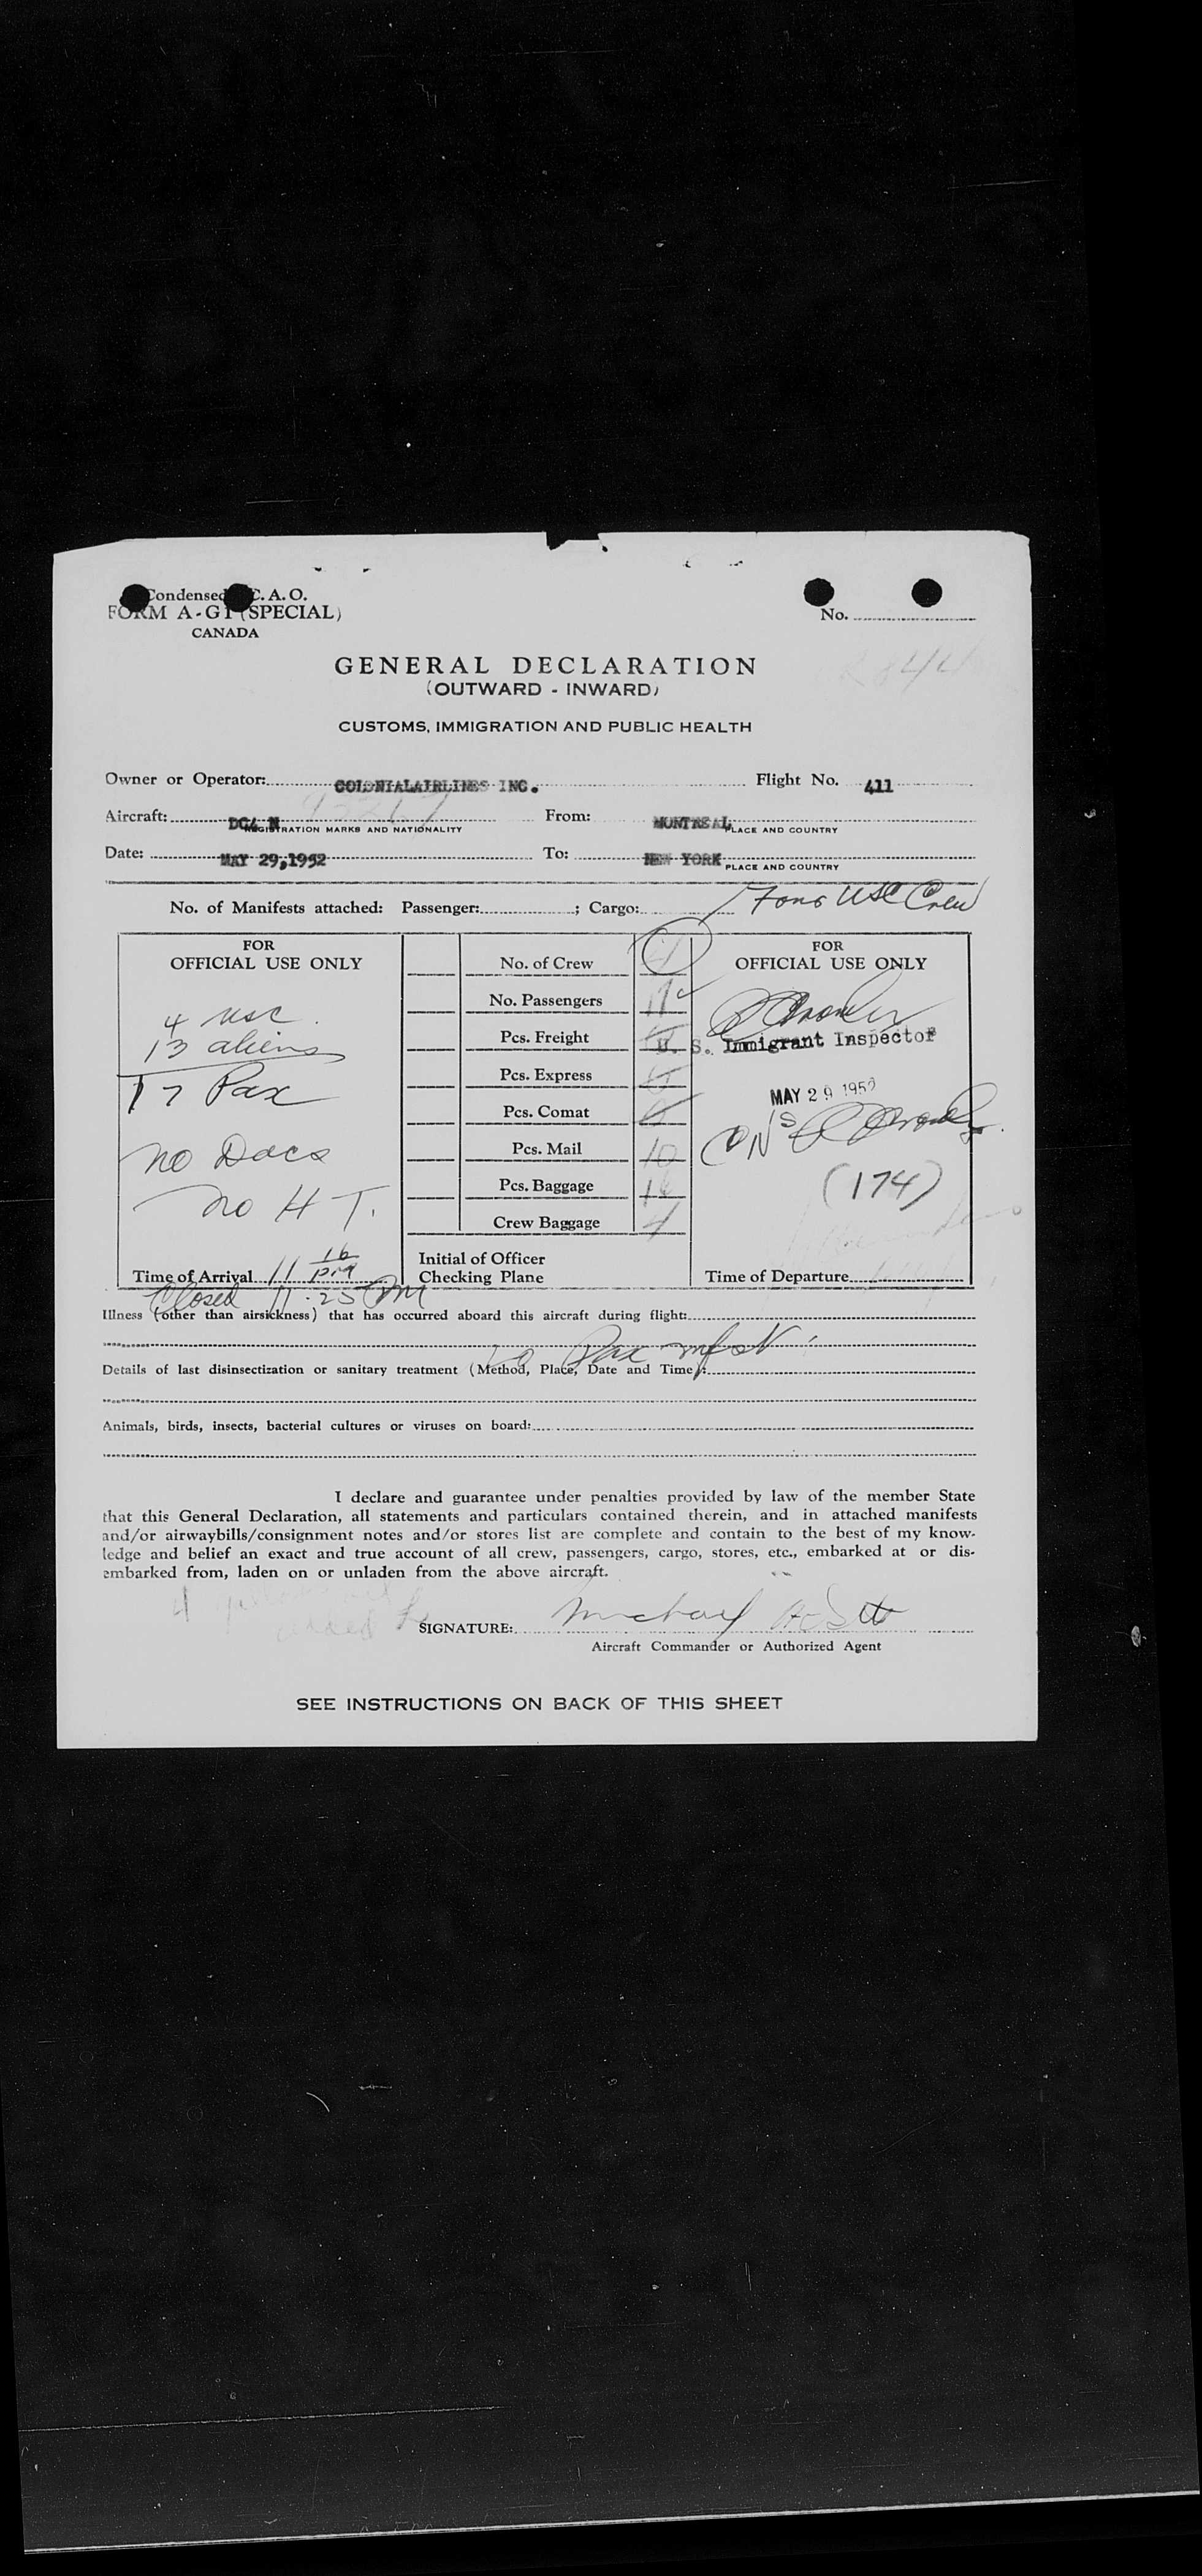 Condensed C. A. O.
FORM A-G1 (SPECIAL)
CANADA
No.
GENERAL DECLARATION
(OUTWARD - INWARD)
CUSTOMS, IMMIGRATION AND PUBLIC HEALTH
Owner or Operator: COLONIALAIRLINES INC. Flight No. 411
Aircraft: DC4 N From: MONTREAL
REGISTRATION MARKS AND NATIONALITY PLACE AND COUNTRY
Date: MAY 29,1952 To: NEW YORK
PLACE AND COUNTRY
No. of Manifests attached: Passenger: ; Cargo: Four USC Crew
FOR
OFFICIAL USE ONLY
4 usc
13 aliens
17 Pax
no Docs
no H T.
Time of Arrival 11 16 pm
Closed 11:25 PM
No. of Crew 4
No. Passengers 17
Pcs. Freight
Pcs. Express
Pcs. Comat
Pcs. Mail 10
Pcs. Baggage
Crew Baggage 4
Initial of Officer
Checking Plane
FOR
OFFICIAL USE ONLY
U. S. Immigrant Inspector
MAY 29 195
(174)
Time of Departure
Illness (other than airsickness) that has occurred aboard this aircraft during flight:
Pax
Details of last disinsectization or sanitary treatment (Method, Place, Date and Time):
Animals, birds, insects, bacterial cultures or viruses on board:
I declare and guarantee under penalties provided by law of the member State
that this General Declaration, all statements and particulars contained therein, and in attached manifests
and/or airwaybills/consignment notes and/or stores list are complete and contain to the best of my know-
ledge and belief an exact and true account of all crew, passengers, cargo, stores, etc., embarked at or dis-
embarked from, laden on or unladen from the above aircraft.
4
SIGNATURE: Michael
Aircraft Commander or Authorized Agent
SEE INSTRUCTIONS ON BACK OF THIS SHEET